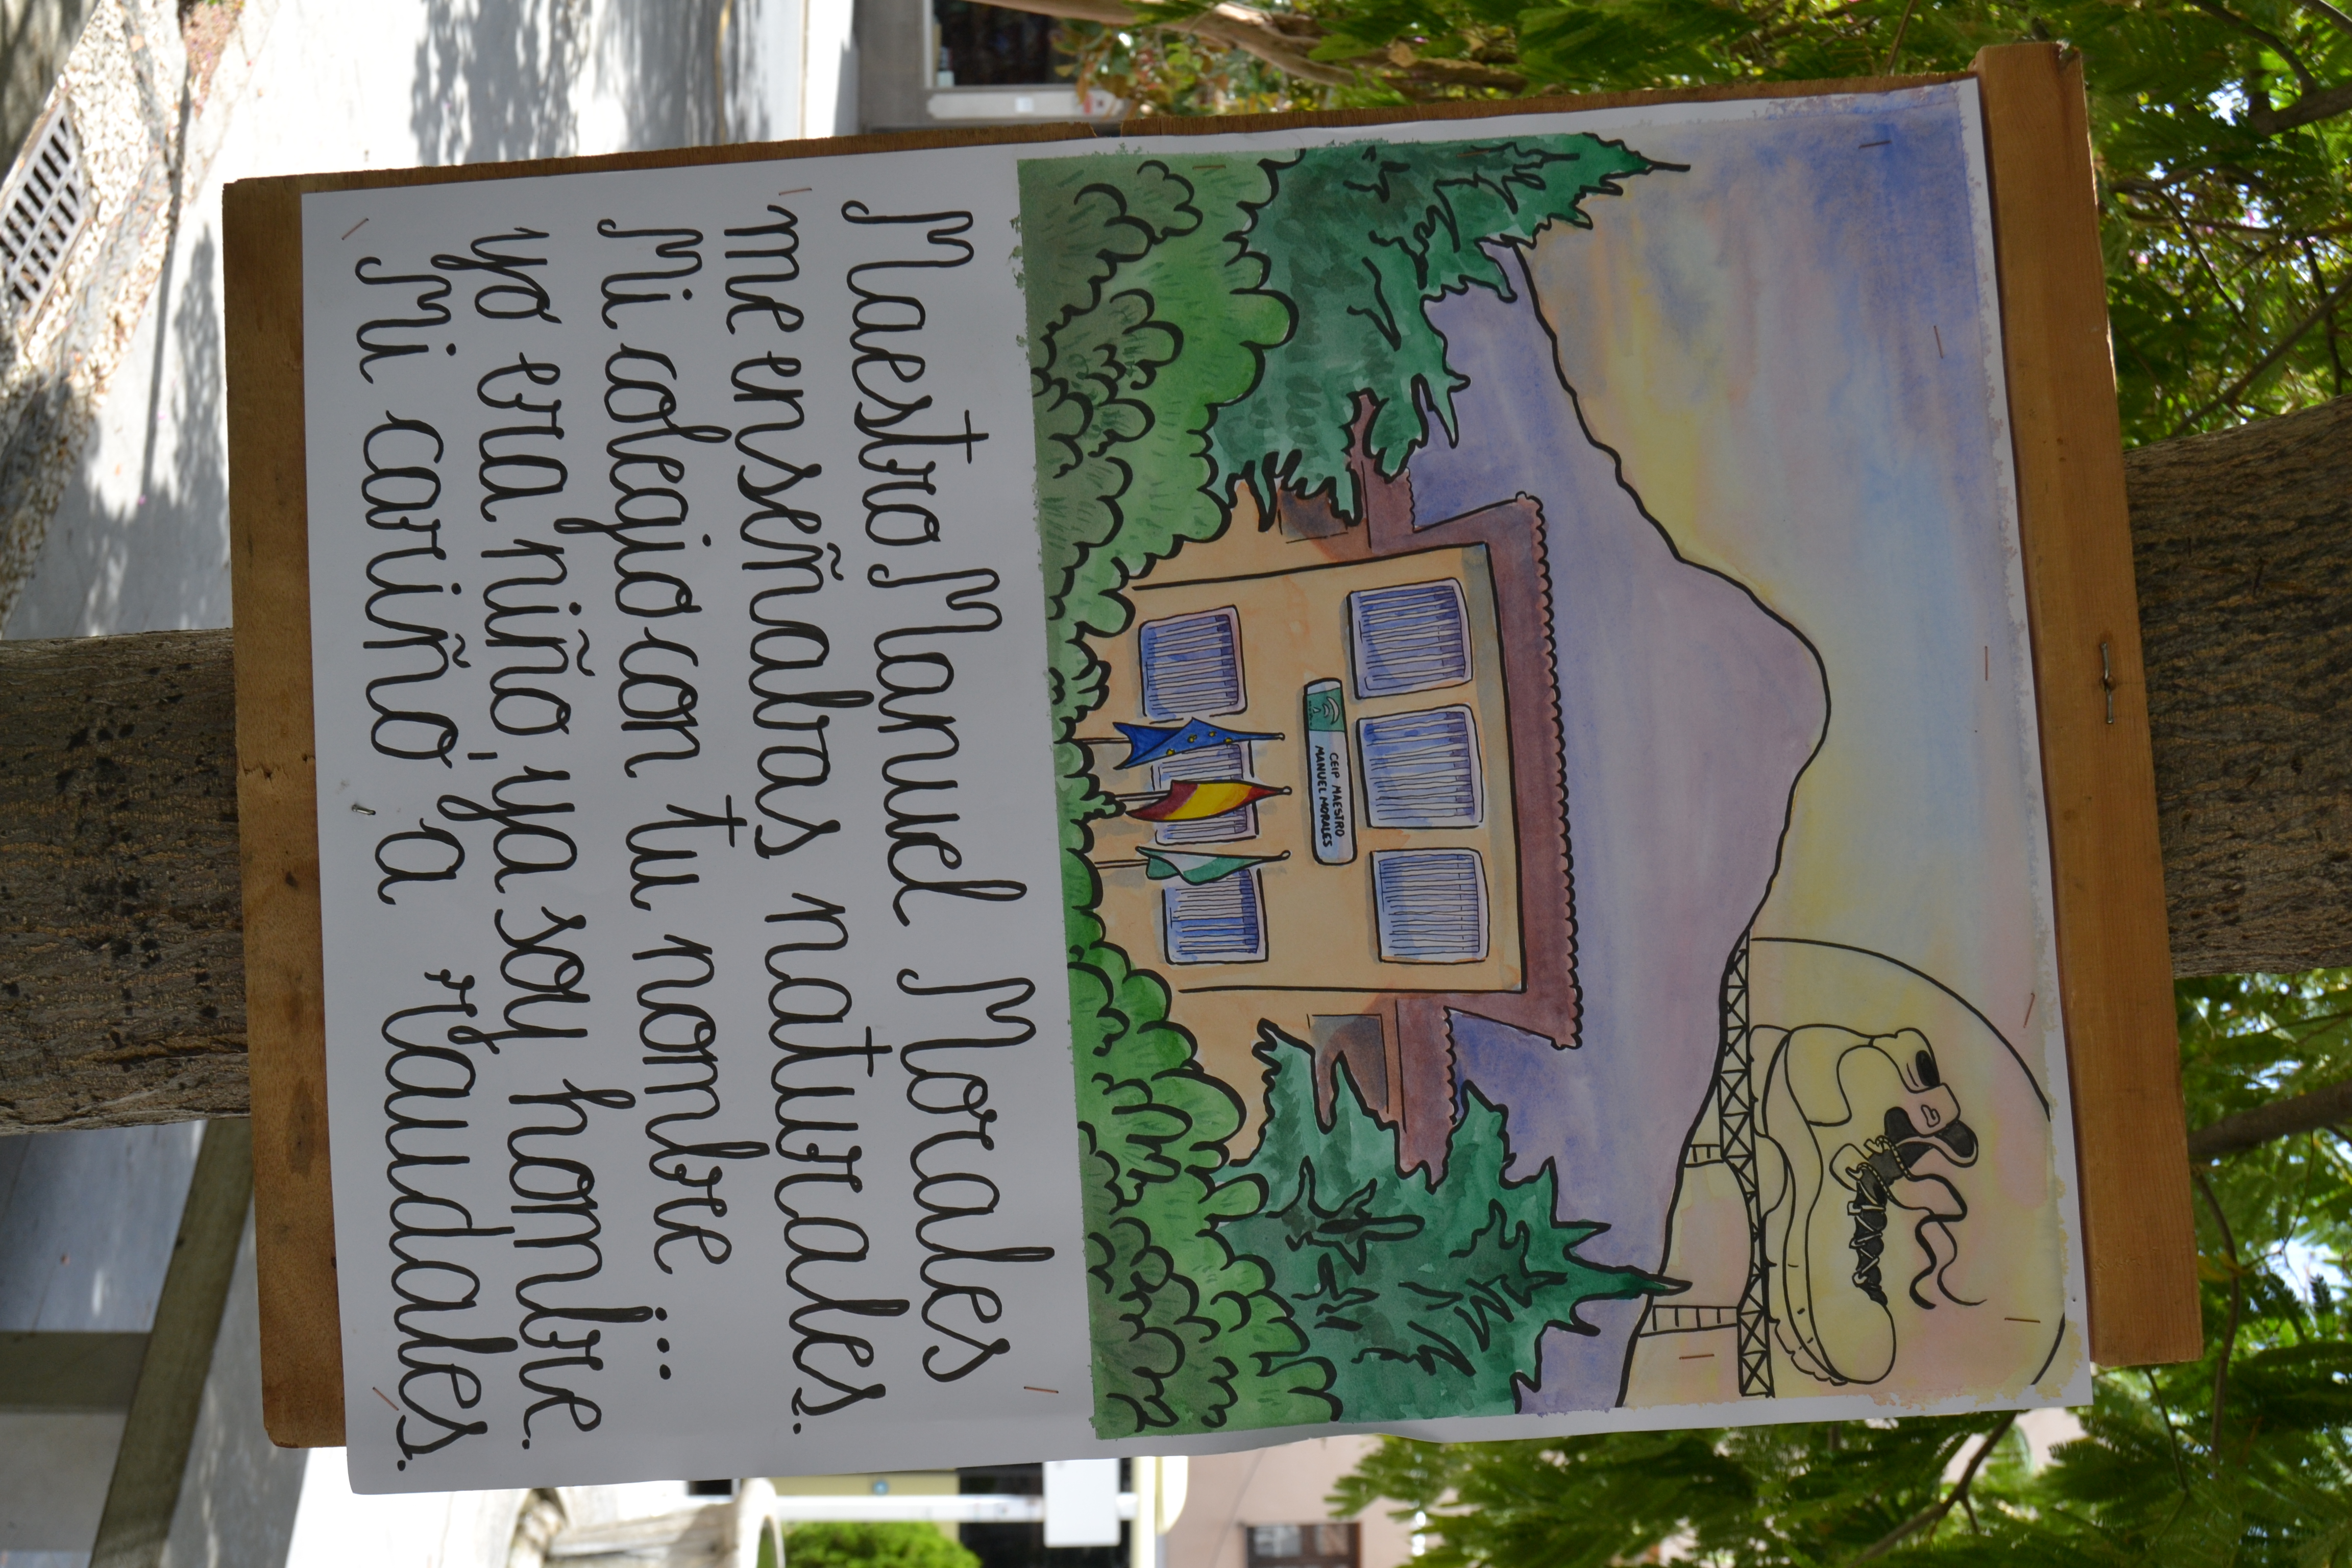 CEIP MAESTRO
MANUEL MORALES
Maestro Manuel Morales
me enseñabas naturales.
Mi colegio con tu nombre...
yo era niño, ya soy hombre.
Mi cariño, a raudales.